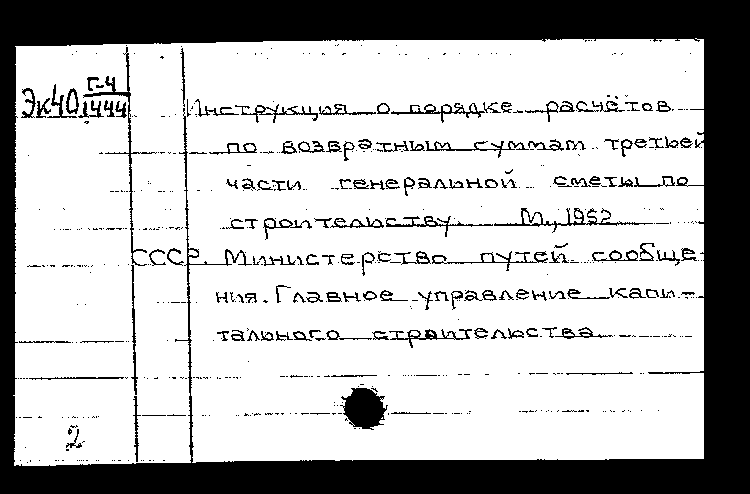 Эк40 Г-4/1444
Инструкция о порядке расчётов
по возвратным суммам третьей
части генеральной сметы по
строительству. М., 1952
СССР. Министерство путей сообще-
ния. Главное управление капи-
тального строительства.
2